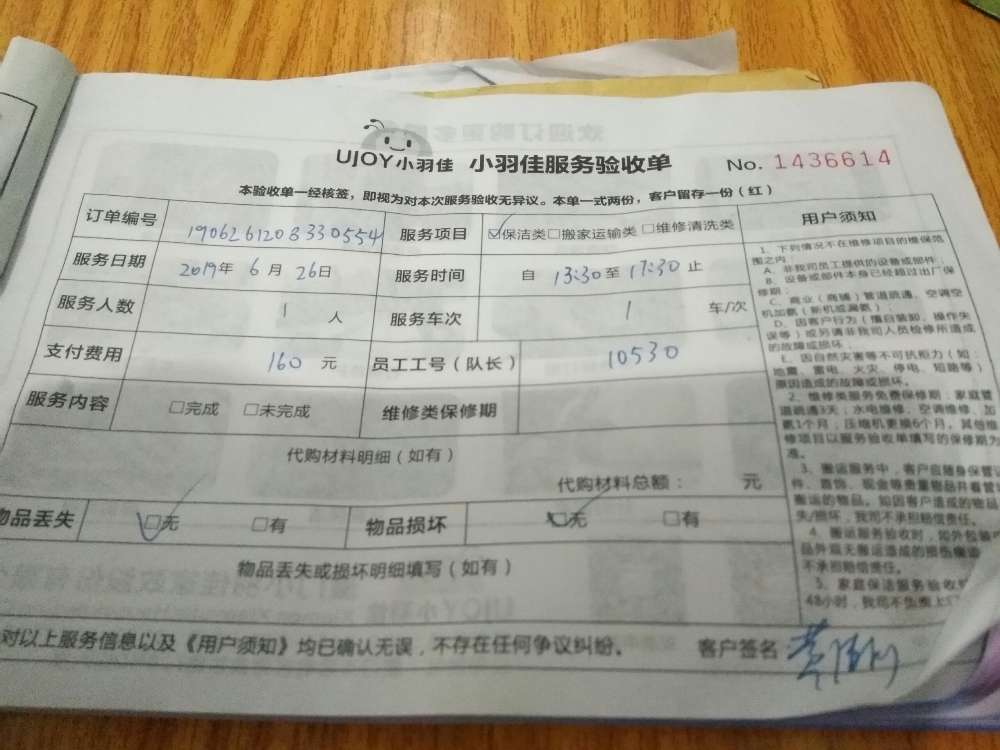 UJOY小羽佳 小羽佳服务验收单 No. 1436614
本验收单一经核签，即视为对本次服务验收无异议。本单一式两份，客户留存一份（红）
订单编号 1906261208330554 服务项目 ☑保洁类□搬家运输类□维修清洗类
服务日期 2019年 6月 26日 服务时间 自 13:30至17:30止
服务人数 1 人 服务车次 1 车/次
支付费用 160 元 员工工号（队长） 10530
服务内容 □完成 □未完成 维修类保修期
代购材料明细（如有）
代购材料总额： 元
物品丢失 ☑无 □有 物品损坏 ☑无 □有
物品丢失或损坏明细填写（如有）
对以上服务信息以及《用户须知》均已确认无误，不存在任何争议纠纷。 客户签名
用户须知
1、下列情况不在维修项目的维保范
围之内：
A、非我司员工提供的设备或部件；
B、设备或部件本身已经超过出厂保
修期；
C、商业（商铺）管道疏通、空调空
机加氨（新机或漏氨）；
D、因客户行为（擅自装卸、操作失
误等）或另请非我司人员检修所造成
的故障或损坏；
E、因自然灾害等不可抗拒力（如：
地震、雷电、火灾、停电、短路等）
原因造成的故障或损坏。
2、维修类服务免费保修期：家庭管
道疏通3天；水电维修、空调维修、加
氨1个月；压缩机更换6个月。其他维
修项目以服务验收单填写的保修期为
准。
3、搬运服务中，客户自随身保管
件、首饰、现金等贵重物品并看管
搬运的物品。如因客户造成的物品
失/损坏，我司不承担赔偿责任。
4、搬运服务验收时，如外包装
品外观无搬运造成的损伤痕迹
不承担赔偿责任。
5、家庭保洁服务验收
48小时，我司不负责上